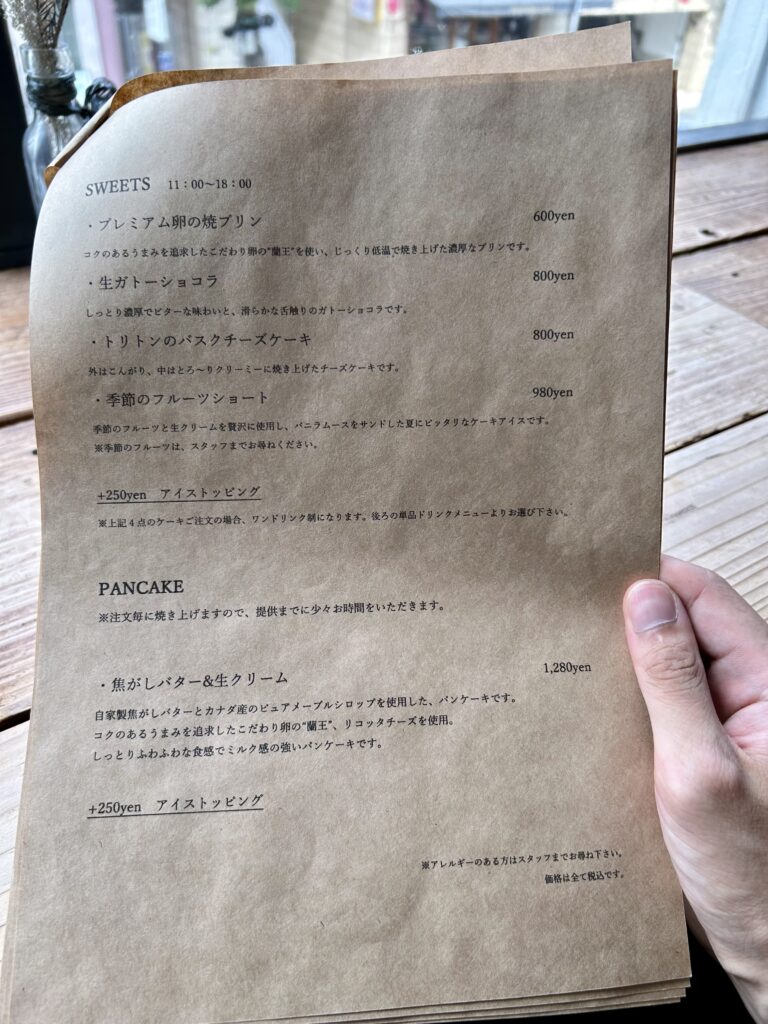 SWEETS 11:00~18:00
・プレミアム卵の焼プリン 600yen
コクのあるうまみを追求したこだわり卵の"蘭王"を使い、じっくり低温で焼き上げた濃厚なプリンです。
・生ガトーショコラ 800yen
しっとり濃厚でビターな味わいと、滑らかな舌触りのガトーショコラです。
・トリトンのバスクチーズケーキ 800yen
外はこんがり、中はとろ〜りクリーミーに焼き上げたチーズケーキです。
・季節のフルーツショート 980yen
季節のフルーツと生クリームを贅沢に使用し、バニラムースをサンドした夏にピッタリなケーキアイスです。
※季節のフルーツは、スタッフまでお尋ねください。
+250yen アイストッピング
※上記4点のケーキご注文の場合、ワンドリンク制になります。後ろの単品ドリンクメニューよりお選び下さい。
PANCAKE
※注文毎に焼き上げますので、提供までに少々お時間をいただきます。
・焦がしバター&生クリーム 1,280yen
自家製焦がしバターとカナダ産のピュアメープルシロップを使用した、パンケーキです。
コクのあるうまみを追求したこだわり卵の"蘭王"、リコッタチーズを使用。
しっとりふわふわな食感でミルク感の強いパンケーキです。
+250yen アイストッピング
※アレルギーのある方はスタッフまでお尋ね下さい。
価格は全て税込です。